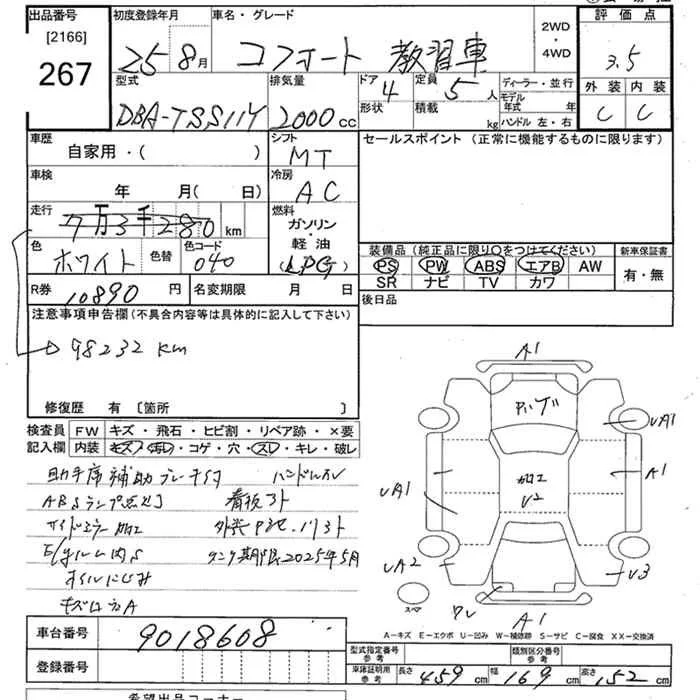 出品番号
[2166]
267
初度登録年月
25 8月
車名・グレード
コンフォート 教習車
2WD
・
4WD
評価点
3.5
外装 内装
C C
型式
DBA-TSS11Y
排気量
2000cc
ドア
4
形状
定員
5人
積載
kg
ディーラー・並行
モデル
年式 年
ハンドル 左・右
車歴
自家用・( )
シフト
MT
セールスポイント (正常に機能するものに限ります)
車検
年 月( 日)
冷房
AC
走行
7万3千280km
燃料
ガソリン
・
軽油
(LPG)
色
ホワイト
色替
色コード
040
装備品 (純正品に限り〇をつけてください)
PS PW ABS エアB AW
SR ナビ TV カワ
新車保証書
有・無
R券
10890円
名変期限 月 日
後日品
注意事項申告欄(不具合内容等は具体的に記入して下さい)
98232 km
修復歴 有 〔箇所 〕
検査員
記入欄
FW キズ・飛石・ヒビ割・リペア跡・×要
内装 キズ・汚れ・コゲ・穴・スレ・キレ・破レ
助手席補助ブレーキ付 ハンドルスレ
ABSランプ点灯 看板アト
サイドミラー加工
タンク期限2025年5月
オイルにじみ
A1
UA1
A1
UA1
加工
U2
UA2
U3
スペア
A1
A−キズ E−エクボ U−凹み W−補修跡 S−サビ C−腐食 XX−交換済
車台番号
9018608
登録番号
型式指定番号
参考
類別区分番号
参考
車庫証明用
参考
長さ 459cm 幅 169cm 高さ 152cm
希望出品コーナー